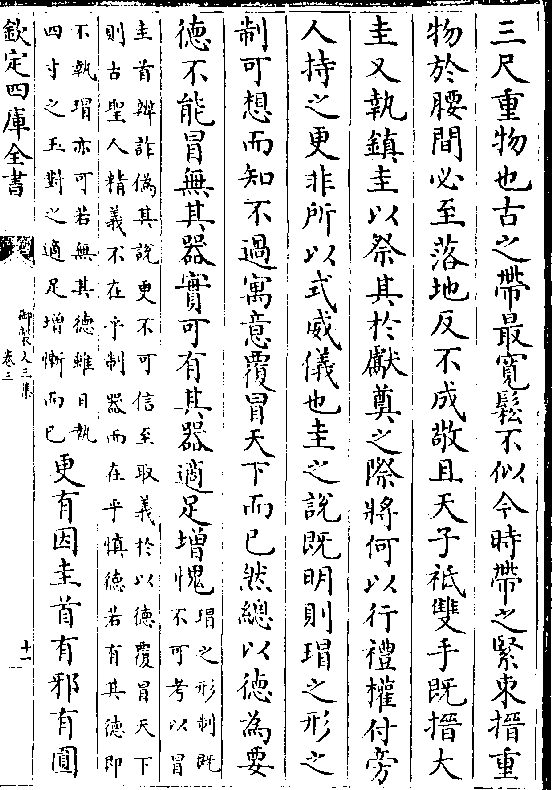 三尺重物也古之帶最寛鬆不似今時帶之緊束搢重
物於腰間必至落地反不成敬且天子祗雙手既搢大
圭又執鎮圭以祭其於獻奠之際將何以行禮權付旁
人持之更非所以式威儀也圭之說既明則瑁之形之
制可想而知不過寓意覆冒天下而已然總以德為要
德不能冒無其器實可有其器適足增愧
瑁之形制既
不可考以冒
圭首辨詐偽其說更不可信至取義於以德覆冒天下
則古聖人精義不在乎制器而在乎慎德若有其德即
不執瑁亦可若無其德雖日執
四寸之玉對之適足增慚而已
更有因圭首有邪有圓
欽定四庫全書
御製文三集
卷三
十一